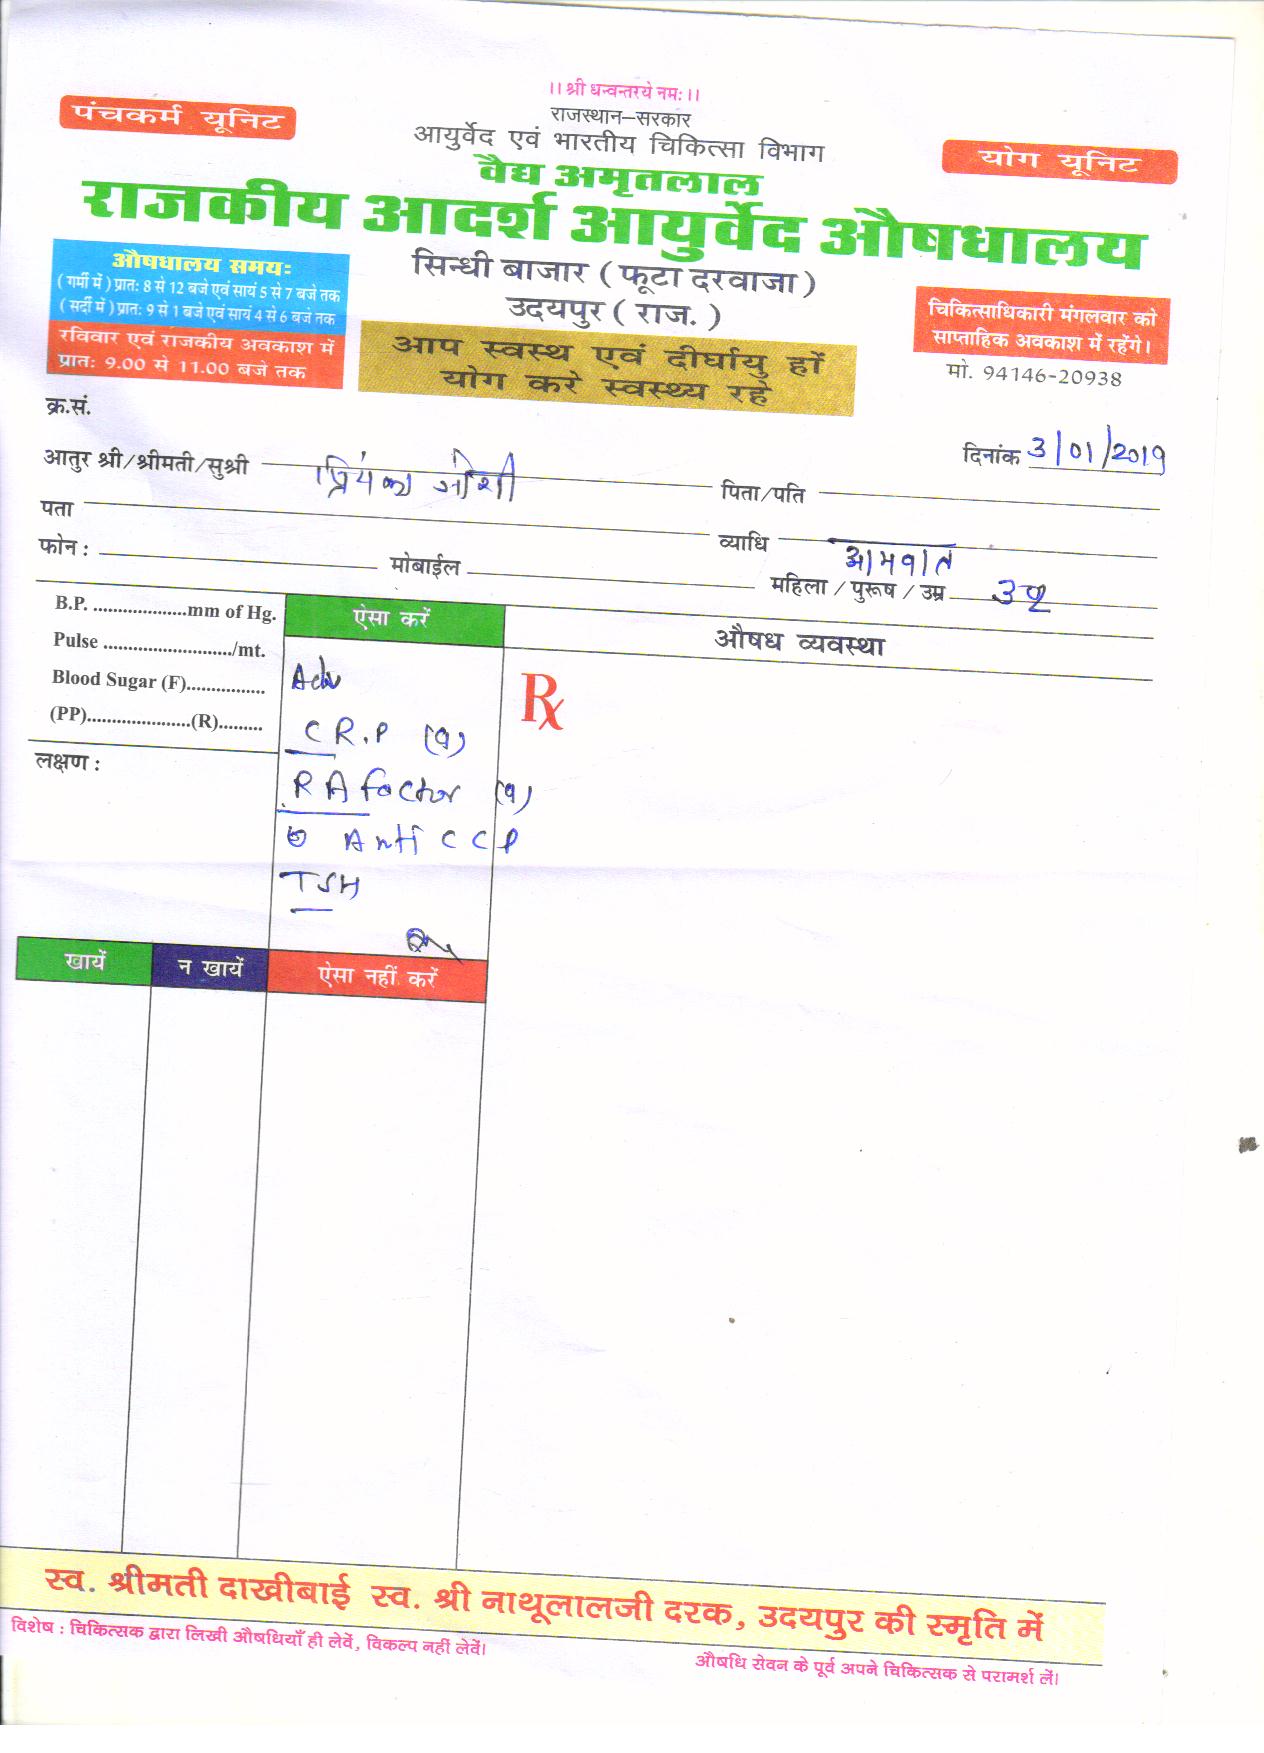 ।। श्री धन्वन्तरये नमः ।।
राजस्थान–सरकार
पंचकर्म यूनिट
आयुर्वेद एवं भारतीय चिकित्सा विभाग
योग यूनिट
वैद्य अमृतलाल
राजकीय आदर्श आयुर्वेद औषधालय
औषधालय समयः
( गर्मी में ) प्रातः 8 से 12 बजे एवं सायं 5 से 7 बजे तक
( सर्दी में ) प्रातः 9 से 1 बजे एवं सायं 4 से 6 बजे तक
रविवार एवं राजकीय अवकाश में
प्रातः 9.00 से 11.00 बजे तक
सिन्धी बाजार ( फूटा दरवाजा )
उदयपुर ( राज. )
आप स्वस्थ एवं दीर्घायु हों
योग करे स्वस्थ्य रहे
चिकित्साधिकारी मंगलवार को
साप्ताहिक अवकाश में रहेंगे।
मो. 94146-20938
क्र.सं.
दिनांक 3/01/2019
आतुर श्री/श्रीमती/सुश्री प्रियंका जोशी पिता/पति
पता व्याधि आमवात
फोन : मोबाईल महिला / पुरूष / उम्र
B.P. ...................mm of Hg.
Pulse ........................../mt.
Blood Sugar (F)................
(PP).....................(R).........
लक्षण :
ऐसा करें
Adv
C R.P (q)
R A factor (q)
Anti C C P
TSH
औषध व्यवस्था
Rx
खायें न खायें ऐसा नहीं करें
स्व. श्रीमती दाखीबाई स्व. श्री नाथूलालजी दरक, उदयपुर की स्मृति में
विशेष : चिकित्सक द्वारा लिखी औषधियाँ ही लेवें, विकल्प नहीं लेवें।
औषधि सेवन के पूर्व अपने चिकित्सक से परामर्श लें।